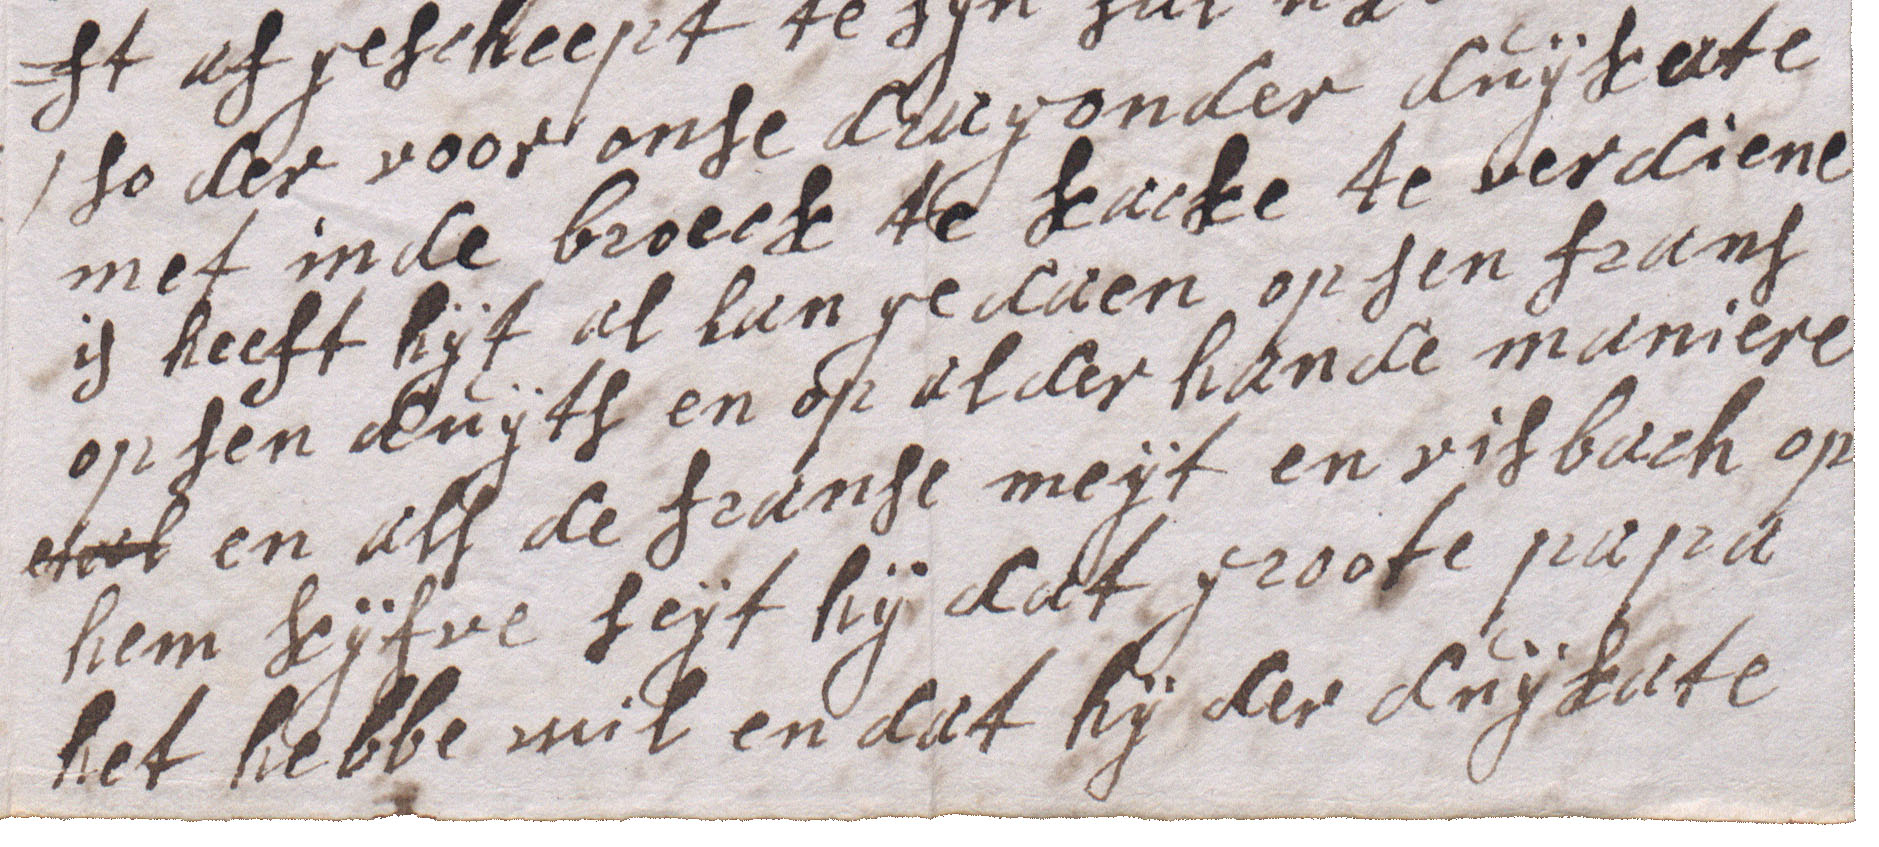 st af gescheept te syn sul
so der voor onse dragonder duÿkate
met inde broeck te kacke te verdiene
is heeft hÿt al lan gedaen op sen frans
op sen duÿts en op alderhande maniere
en als de franse meÿt en risbach op
hem kÿfve seÿt hÿ dat groote papa
het hebbe wil en dat hÿ der duÿkate